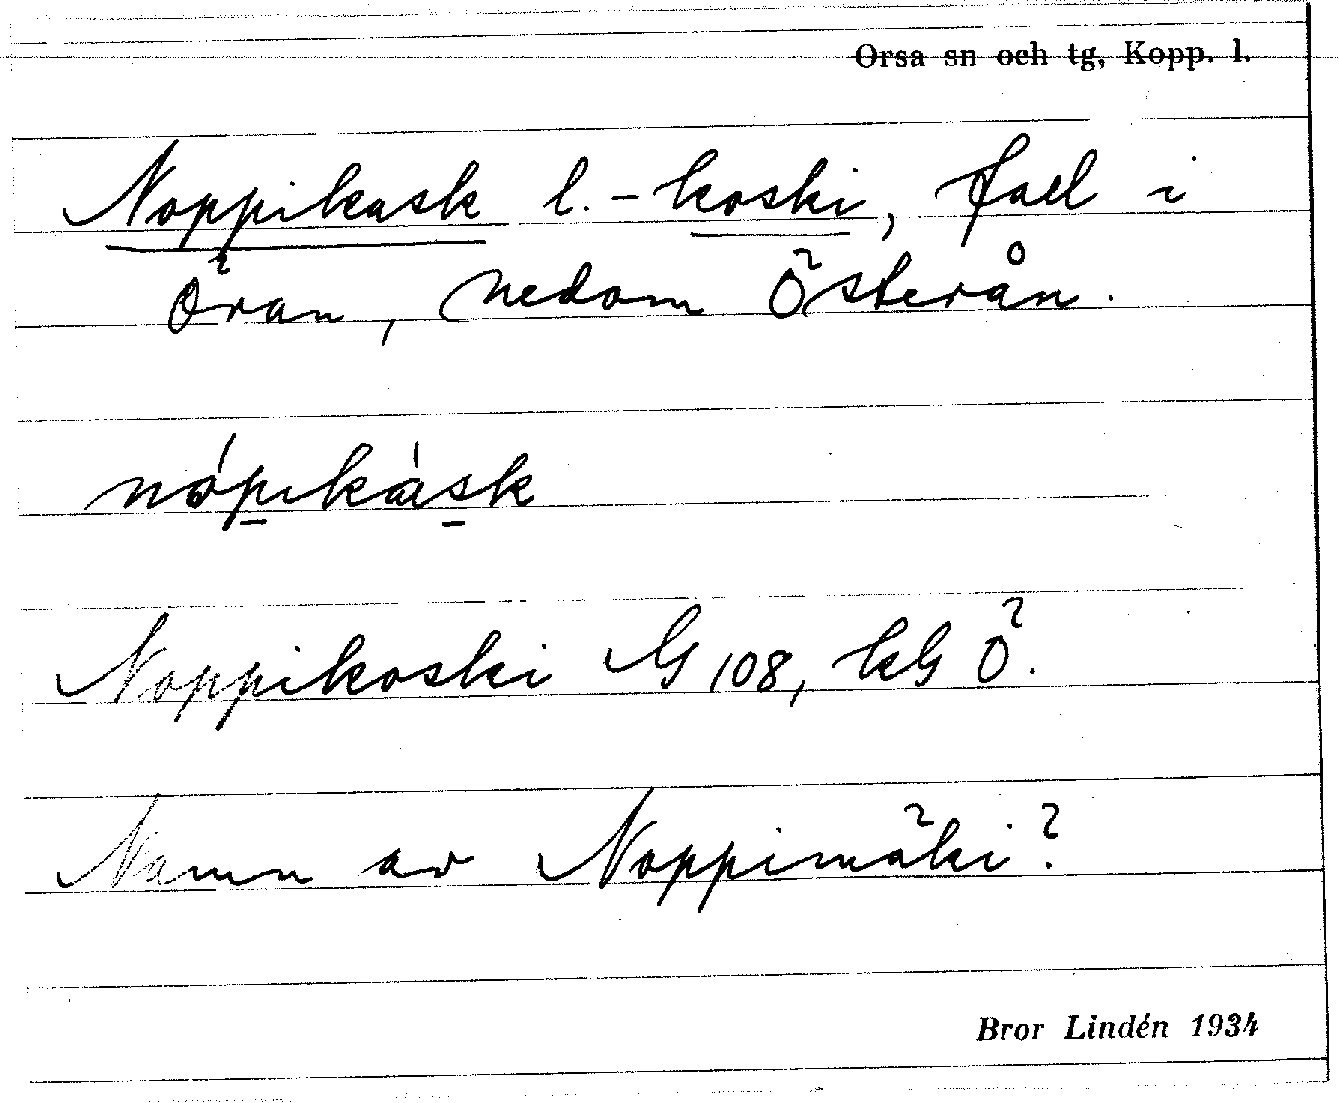 Orsa sn och tg, Kopp. l.
Noppikask l. -koski, fall i
Öran, nedom Österån.
nópikàsk
Noppikoski G 108, kG Ö.
Namn av Noppimäki?
Bror Lindén 1934